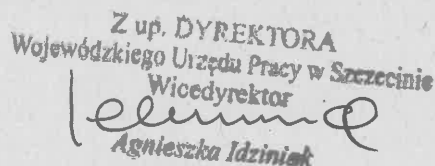 Z up. DYREKTORA
Wojewódzkiego Urzędu Pracy w Szczecinie
Wicedyrektor
Agnieszka Idziniak